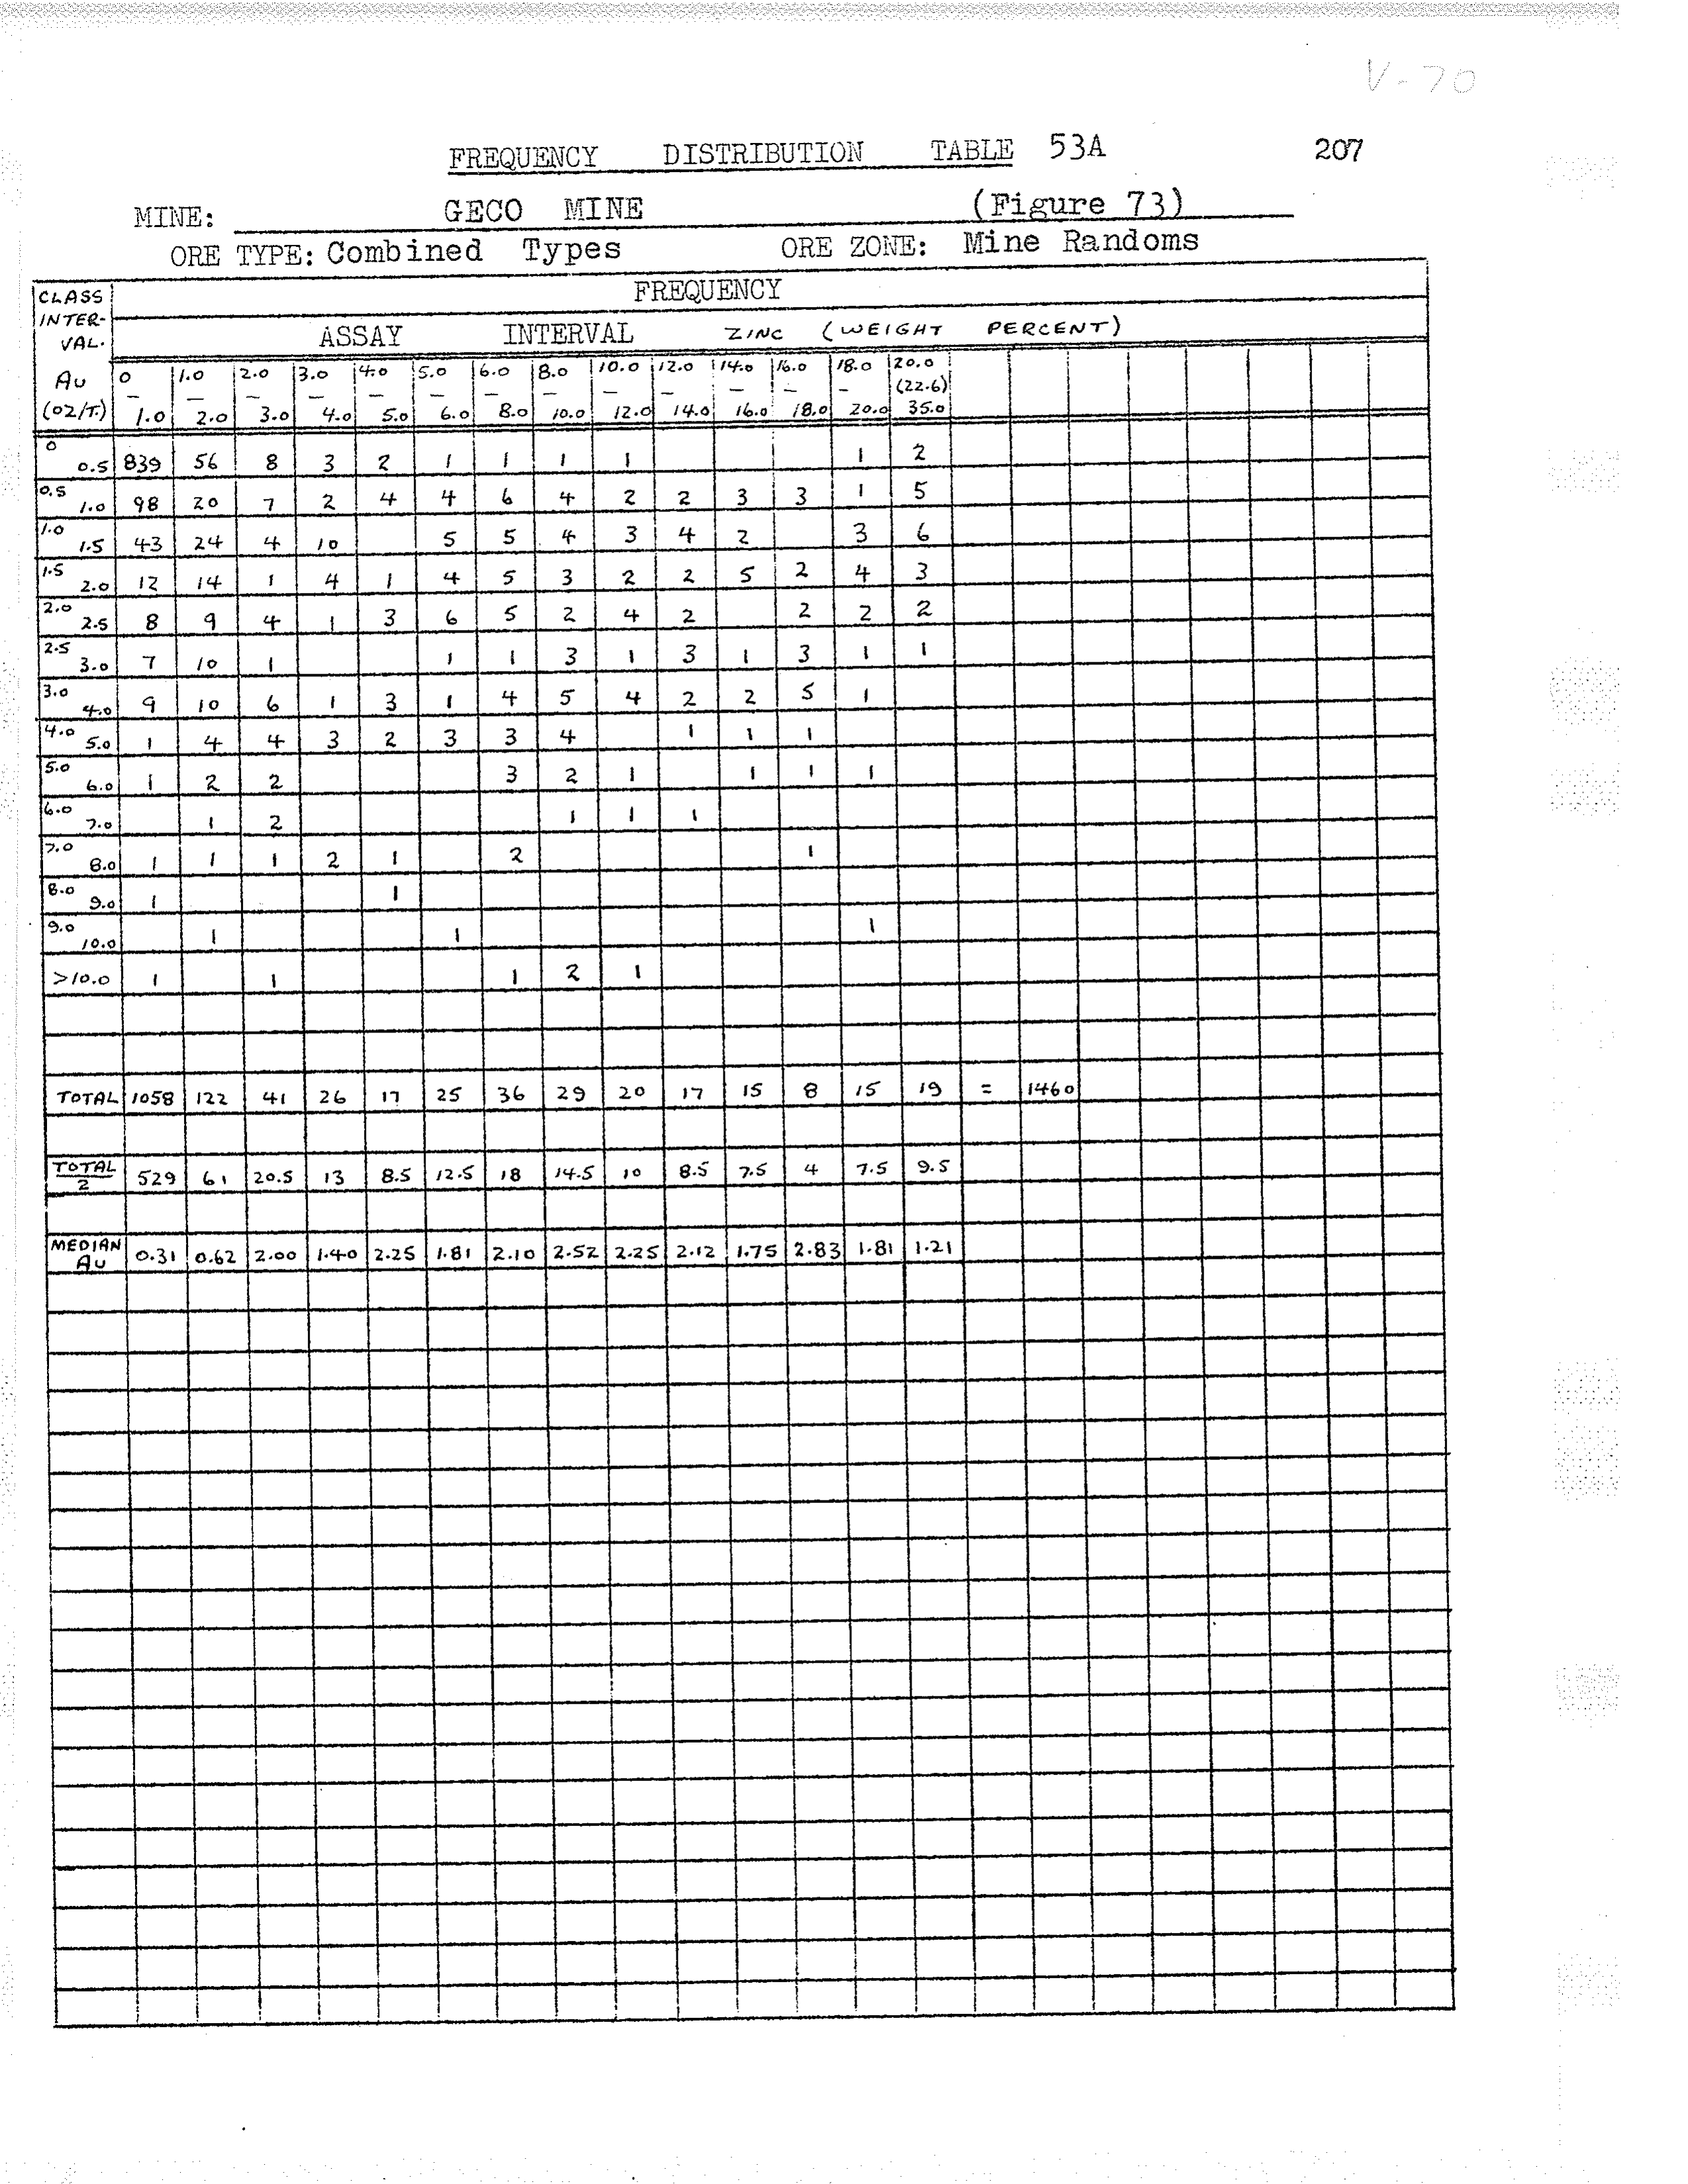 V-70
FREQUENCY DISTRIBUTION TABLE 53A 207
MINE: GECO MINE (Figure 73)
ORE TYPE: Combined Types ORE ZONE: Mine Randoms
CLASS INTER- VAL. FREQUENCY
ASSAY INTERVAL ZINC (WEIGHT PERCENT)
Au (OZ/T.) 0 – 1.0 1.0 – 2.0 2.0 – 3.0 3.0 – 4.0 4.0 – 5.0 5.0 – 6.0 6.0 – 8.0 8.0 – 10.0 10.0 – 12.0 12.0 – 14.0 14.0 – 16.0 16.0 – 18.0 18.0 – 20.0 20.0 (22.6) 35.0
0 0.5 839 56 8 3 2 1 1 1 1 1 2
0.5 1.0 98 20 7 2 4 4 6 4 2 2 3 3 1 5
1.0 1.5 43 24 4 10 5 5 4 3 4 2 3 6
1.5 2.0 12 14 1 4 1 4 5 3 2 2 5 2 4 3
2.0 2.5 8 9 4 1 3 6 5 2 4 2 2 2 2
2.5 3.0 7 10 1 1 1 3 1 3 1 3 1 1
3.0 4.0 9 10 6 1 3 1 4 5 4 2 2 5 1
4.0 5.0 1 4 4 3 2 3 3 4 1 1 1
5.0 6.0 1 2 2 3 2 1 1 1 1
6.0 7.0 1 2 1 1 1
7.0 8.0 1 1 1 2 1 2 1
8.0 9.0 1 1
9.0 10.0 1 1 1
>10.0 1 1 1 2 1
TOTAL 1058 122 41 26 17 25 36 29 20 17 15 8 15 19 = 1460
TOTAL 2 529 61 20.5 13 8.5 12.5 18 14.5 10 8.5 7.5 4 7.5 9.5
MEDIAN Au 0.31 0.62 2.00 1.40 2.25 1.81 2.10 2.52 2.25 2.12 1.75 2.83 1.81 1.21